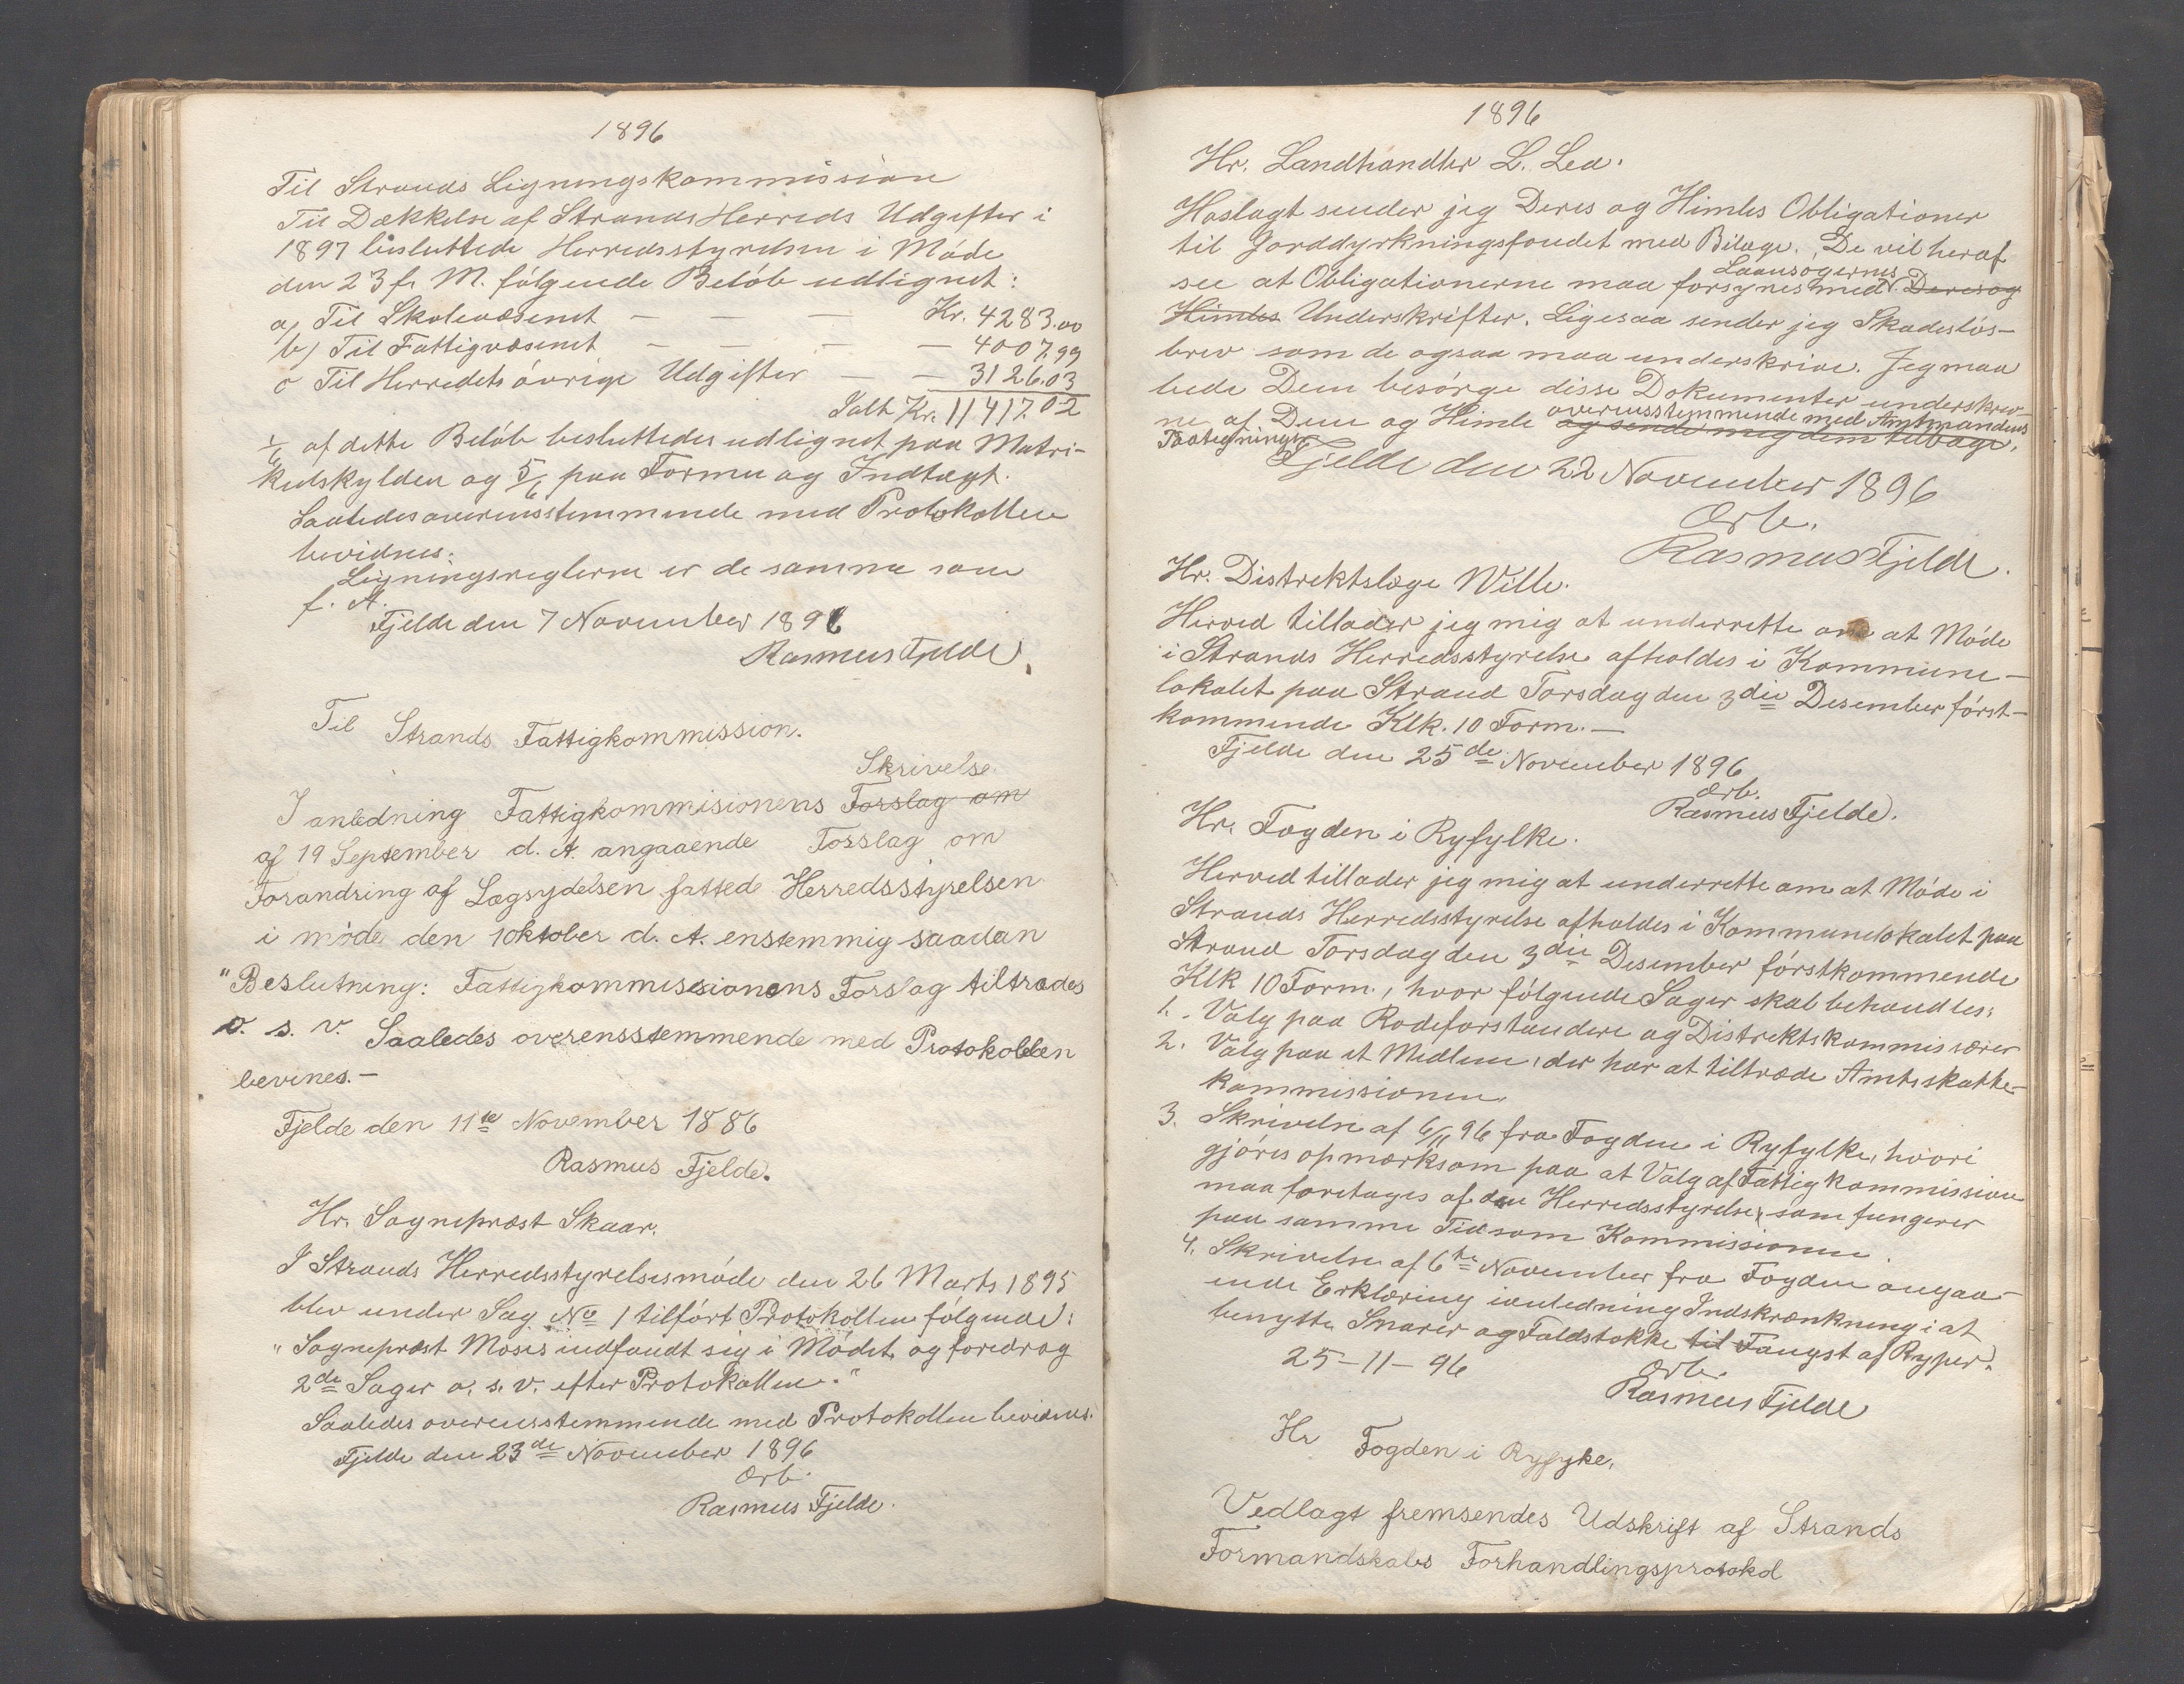 1896
Til Strands Ligningskommission
Til Dækkelse af Strands Herreds Udgifter i
1897 besluttede Herredsstyrelsen i Møde
den 23 f. M. følgende Beløb udlignet:
a) Til Skolevæsenet — — — Kr. 4283.00
b) Til Fattigvæsenet — — — — 4007.99
c Til Herredets øvrige Udgifter — — 3126.03
Ialt Kr. 11417.02
1/6 af dette Beløb besluttedes udlignet paa Matri-
kulskylden og 5/6 paa Formu og Indtægt.
Saaledes overensstemmende med Protokollen
bevidnes.
Ligningsreglerne er de samme som
f. A.
Fjelde den 7 November 1896
Rasmus Fjelde
Til Strands Fattigkommission.
Skrivelse
I anledning Fattigkommisionens Forslag om
af 19 September d. A. angaaende Forslag om
Forandring af Lægsydelsen fattede Herredsstyrelsen
i møde den 1 oktober d. A. enstemmig saadan
"Beslutning: Fattigkommissionens Forslag tiltrædes
o. s. v. Saaledes overensstemmende med Protokollen
bevines.—
Fjelde den 11te November 1886
Rasmus Fjelde.
Hr. Sognepræst Skaar.
I Strands Herredsstyrelsesmøde den 26 Marts 1895
blev under Sag No 1 tilført Protokollen følgende:
"Sognepræst Moses indfandt sig i Mødet og foredrog
2de Sager o. s. v. efter Protokollen."
Saaledes overensstemmende med Protokollen bevidnes.
Fjelde den 23de November 1896
Ærb.
Rasmus Fjelde.
1896
Hr. Landhandler L. Lea.
Hoslagt sender jeg Deres og Himles Obligationer
til Jorddyrkningsfondet med Bilage. De vil heraf
Laansøgernes
see at Obligationerne maa forsynes med Deres og
Himles Underskrifter. Ligesaa sender jeg Skadesløs-
brev som de ogsaa maa underskrive. Jeg maa
bede Dem besørge disse Dokumenter underskrev-
overensstemmende med Amtmandens
ne af Dem og Himle og sende mig dem tilbage.
Paategninger
Fjelde den 22 November 1896
Ærb.
Rasmus Fjelde.
Hr. Distriktslæge Wille.
Herved tillader jeg mig at underrette om at Møde
i Strands Herredsstyrelse afholdes i Kommune-
lokalet paa Strand Torsdag den 3die Desember først-
kommende Klk. 10 Form.—
Fjelde den 25de November 1896
Ærb.
Rasmus Fjelde.
Hr. Fogden i Ryfylke.
Herved tillader jeg mig at underrette om at Møde i
Strands Herredsstyrelse afholdes i Kommunelokalet paa
Strand Torsdag den 3die Desember førstkommende
Klk 10 Form., hvor følgende Sager skal behandles:
1. Valg paa Rodeforstandere og Distriktskommissærer
2. Valg paa et Medlem, der har at tiltræde Amtsskatte-
kommissionen.
3. Skrivelse af 6/11 96 fra Fogden i Ryfylke, hvori
gjøres opmærksom paa at Valg af Fattigkommission
maa foretages af den Herredsstyrelse, som fungerer
paa samme Tid som Kommissionen.
4. Skrivelse af 6te November fra Fogden angaa-
ende Erklæring ianledning Indskrænkning i at
benytte Snarer og Faldstokke til Fangst af Ryper.
25-11-96
Ærb.
Rasmus Fjelde
Hr Fogden i Ryfyke.
Vedlagt fremsendes Udskrift af Strands
Formandskabs Forhandlingsprotokol